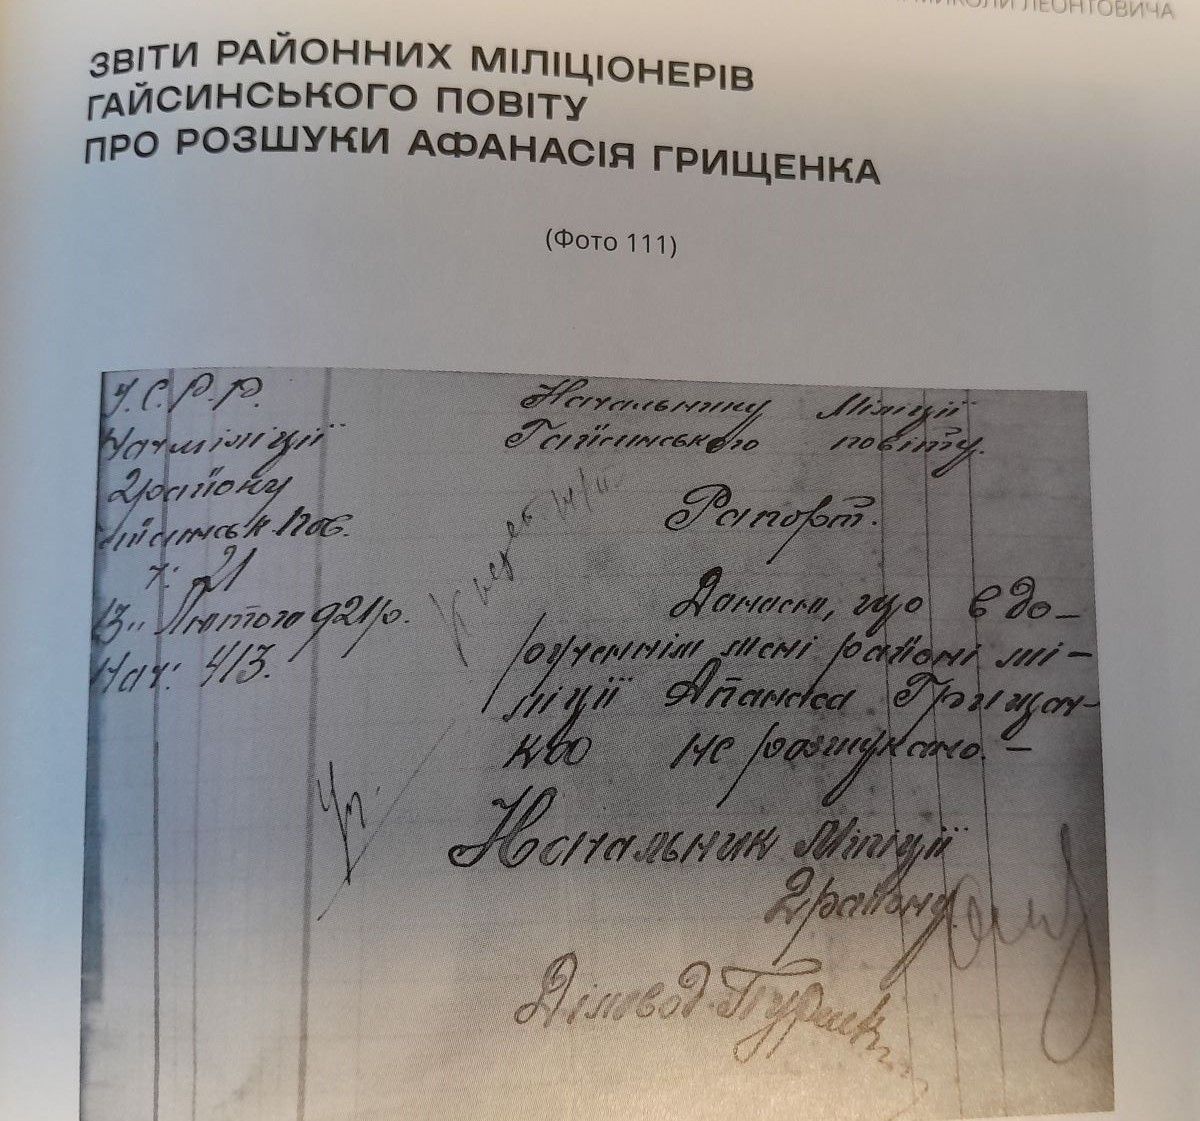 МИКОЛИ ЛЕОНТОВИЧА
ЗВІТИ РАЙОННИХ МІЛІЦІОНЕРІВ
ГАЙСИНСЬКОГО ПОВІТУ
ПРО РОЗШУКИ АФАНАСІЯ ГРИЩЕНКА
(Фото 111)
У.С.Р.Р.
Начміліції
2 району
Гайсинськ. пов.
21
13" Лютого 921 р.
413.
Начальнику Міліції
Гайсинського повіту.
Рапорт.
Доношу, що в до-
рученнім мені районі мі-
ліції Апанаса Грищен-
ко не розшукано. —
Начальник Міліції
2 району
Діловод